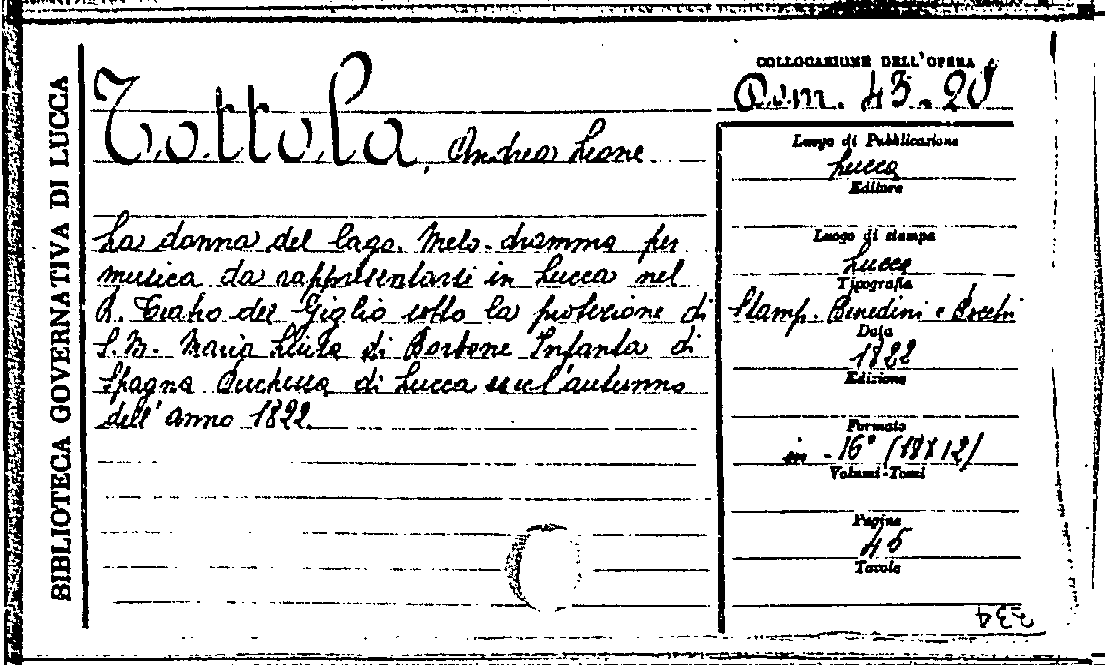 BIBLIOTECA GOVERNATIVA DI LUCCA
Tottola, Andrea Leone
La donna del lago. Melo-dramma per
musica da rappresentarsi in Lucca nel
R. Teatro del Giglio sotto la protezione di
S. M. Maria Luisa di Borbone Infanta di
Spagna Duchessa di Lucca nell'autunno
dell'anno 1822.
COLLOCAZIONE DELL'OPERA
Dom. 43.
Luogo di Pubblicazione
Lucca
Editore
Luogo di stampa
Lucca
Tipografia
Stamp. Benedini e Rocchi
Data
1822
Edizione
Formato
in-16° (18X12)
Volumi-Tomi
Pagine
45
Tavole